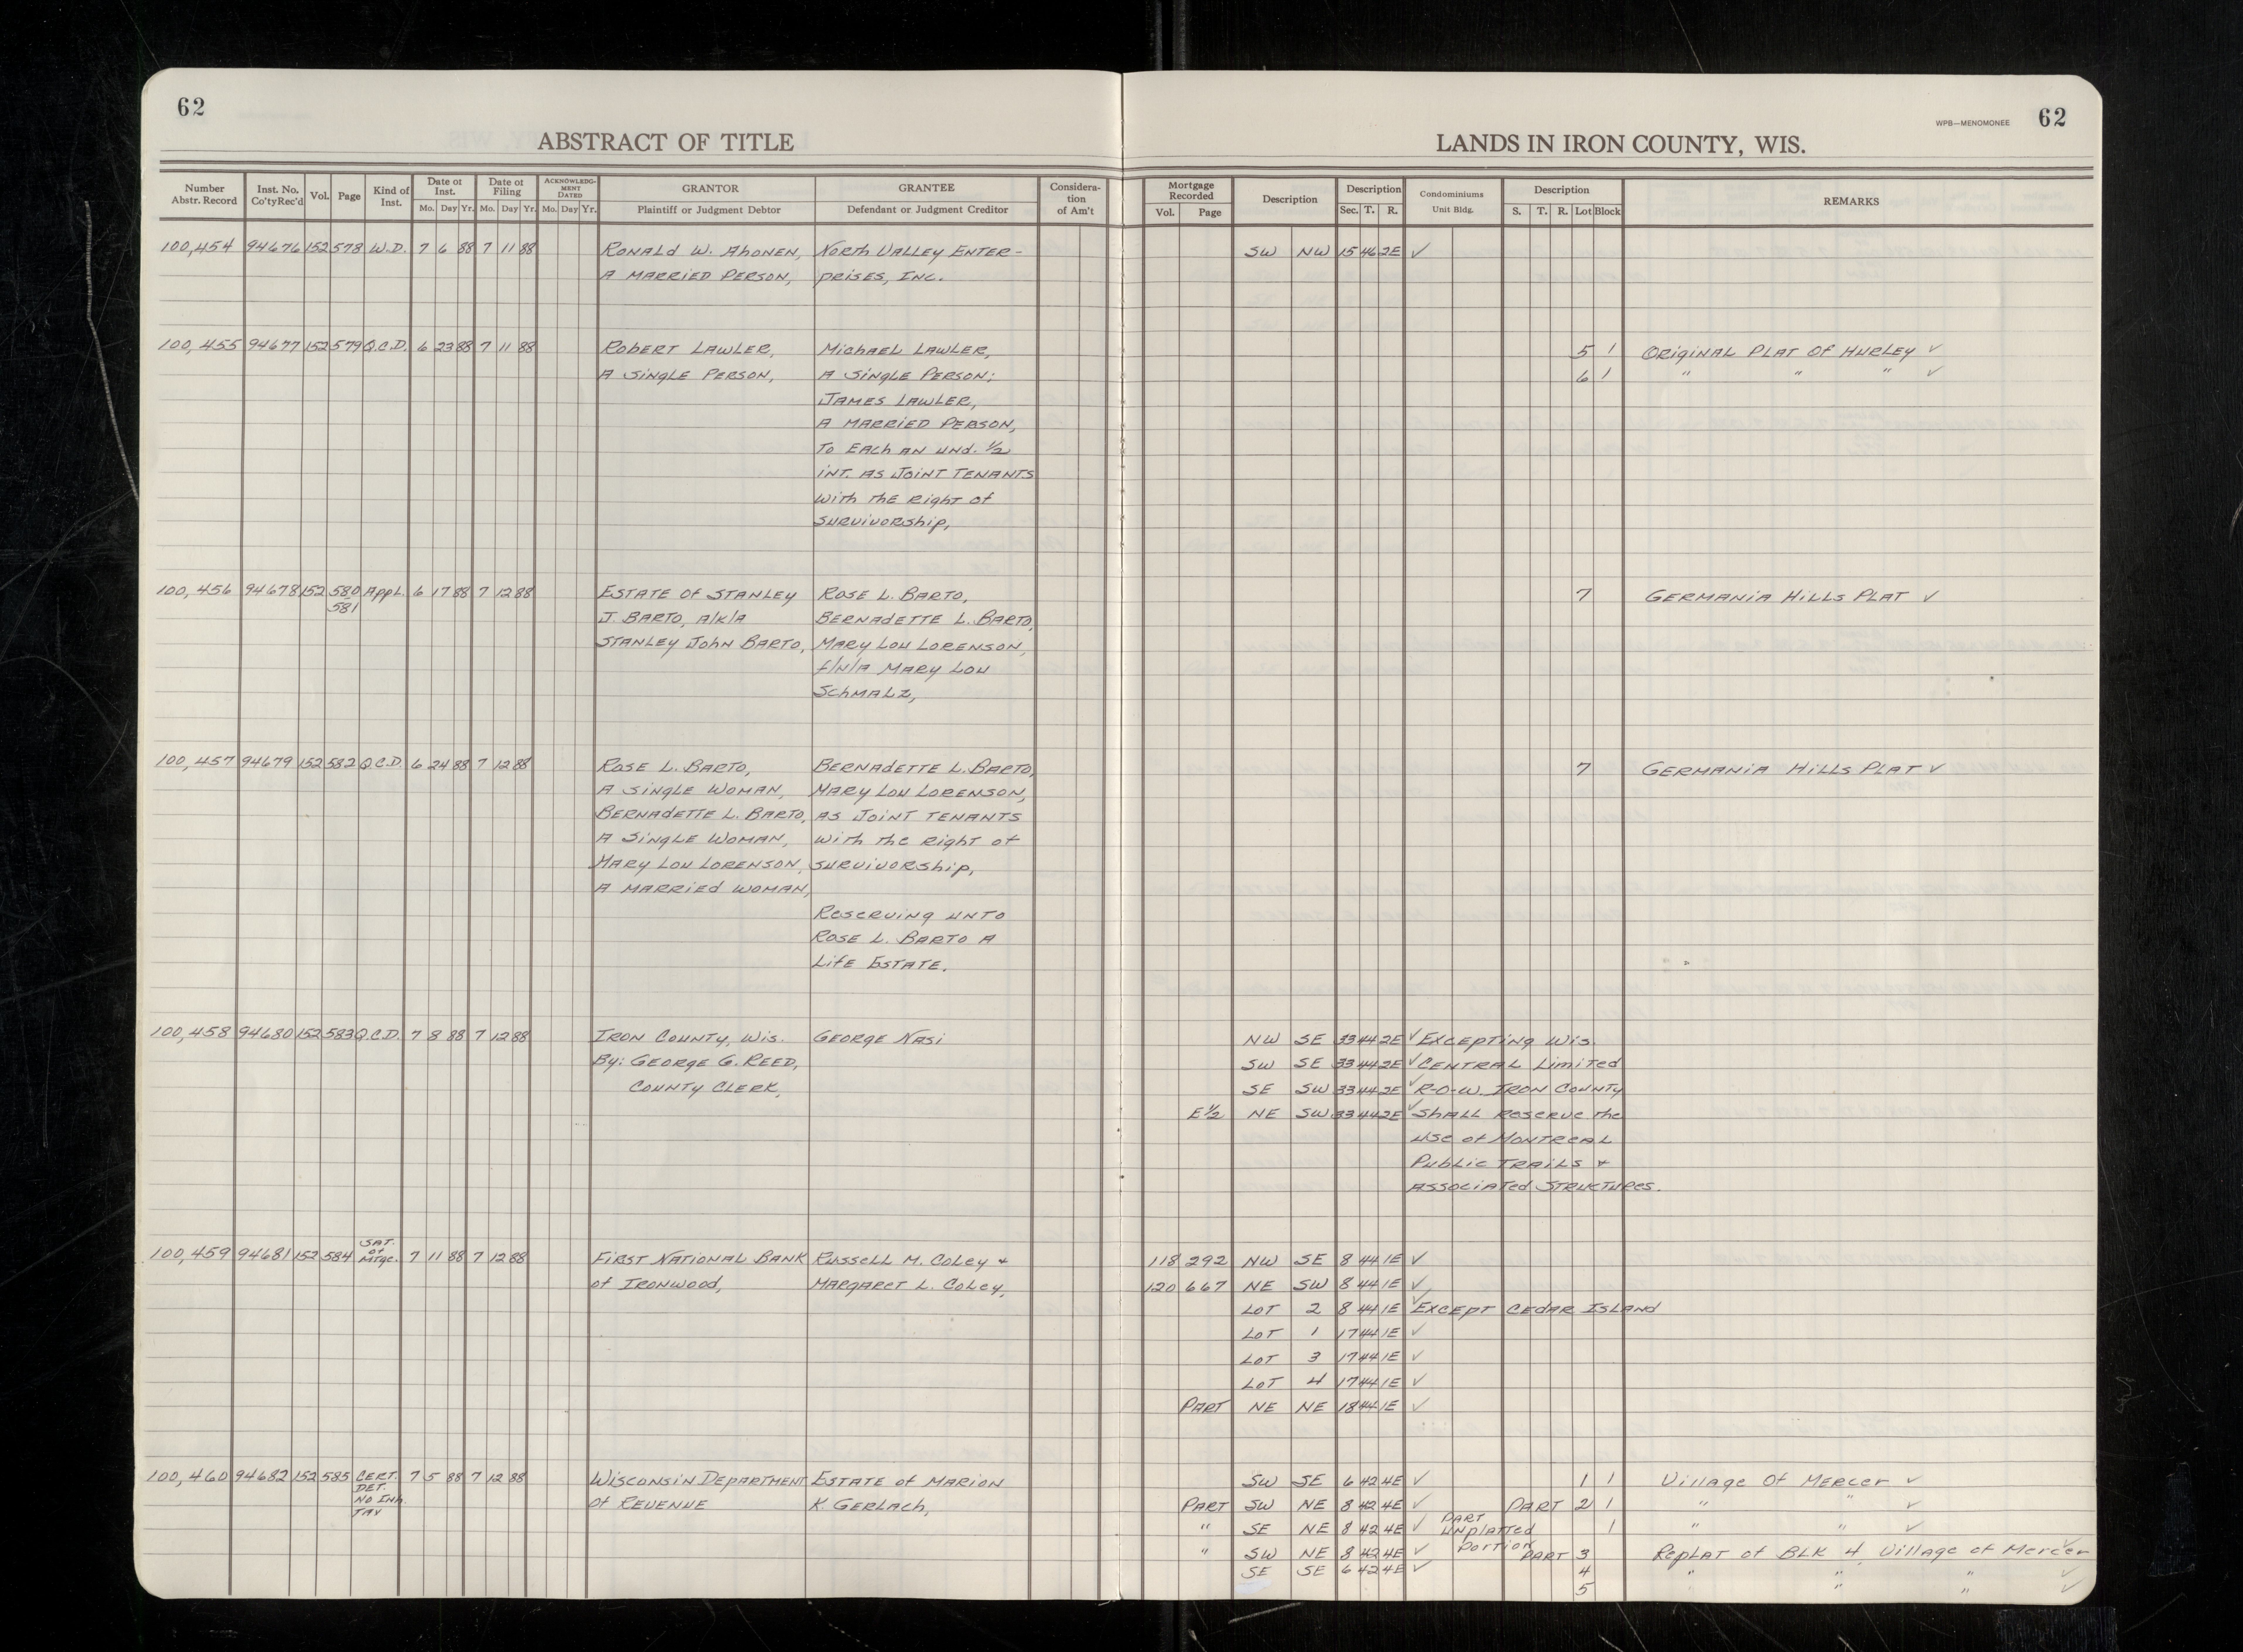 62
WPB—MENOMONEE 62
ABSTRACT OF TITLE LANDS IN IRON COUNTY, WIS.
Number Abstr. Record Inst. No. Co'ty Rec'd Vol. Page Kind of Inst. Date of Inst. Mo. Day Yr. Date of Filing Mo. Day Yr. ACKNOWLEDG-MENT DATED Mo. Day Yr. GRANTOR Plaintiff or Judgment Debtor GRANTEE Defendant or Judgment Creditor Considera-tion of Am't Mortgage Recorded Vol. Page Description Description Sec. T. R. Condominiums Unit Bldg. Description S. T. R. Lot Block REMARKS
100,454 94676 152 578 W.D. 7 6 88 7 11 88 RONALD W. AHONEN, NORTH VALLEY ENTER- SW NW 15 46 2E ✓
A MARRIED PERSON, PRISES, INC.
100,455 94677 152 579 Q.C.D. 6 23 88 7 11 88 ROBERT LAWLER, MICHAEL LAWLER, 5 1 ORIGINAL PLAT OF HURLEY ✓
A SINGLE PERSON, A SINGLE PERSON; 6 1 " " " ✓
JAMES LAWLER,
A MARRIED PERSON,
TO EACH AN UND. 1/2
INT. AS JOINT TENANTS
WITH THE RIGHT OF
SURVIVORSHIP,
100,456 94678 152 580 APPL. 6 17 88 7 12 88 ESTATE OF STANLEY ROSE L. BARTO, 7 GERMANIA HILLS PLAT ✓
581
J. BARTO, A/K/A BERNADETTE L. BARTO,
STANLEY JOHN BARTO, MARY LOU LORENSON,
F/N/A MARY LOU
SCHMALZ,
100,457 94679 152 582 Q.C.D. 6 24 88 7 12 88 ROSE L. BARTO, BERNADETTE L. BARTO, 7 GERMANIA HILLS PLAT ✓
A SINGLE WOMAN, MARY LOU LORENSON,
BERNADETTE L. BARTO, AS JOINT TENANTS
A SINGLE WOMAN, WITH THE RIGHT OF
MARY LOU LORENSON, SURVIVORSHIP,
A MARRIED WOMAN,
RESERVING UNTO
ROSE L. BARTO A
LIFE ESTATE.
100,458 94680 152 583 Q.C.D. 7 8 88 7 12 88 IRON COUNTY, WIS. GEORGE NASI NW SE 33 44 2E ✓ EXCEPTING WIS.
BY: GEORGE G. REED, SW SE 33 44 2E ✓ CENTRAL LIMITED
COUNTY CLERK, SE SW 33 44 2E ✓ R-O-W. IRON COUNTY
E 1/2 NE SW 33 44 2E ✓ SHALL RESERVE THE
USE OF MONTREAL
PUBLIC TRAILS +
ASSOCIATED STRUCTURES.
100,459 94681 152 584 SAT. OF MTGE. 7 11 88 7 12 88 FIRST NATIONAL BANK RUSSELL M. COLEY + 118 292 NW SE 8 44 1E ✓
OF IRONWOOD, MARGARET L. COLEY, 120 667 NE SW 8 44 1E ✓
LOT 2 8 44 1E ✓ EXCEPT CEDAR ISLAND
LOT 1 17 44 1E ✓
LOT 3 17 44 1E ✓
LOT 4 17 44 1E ✓
PART NE NE 18 44 1E ✓
100,460 94682 152 585 CERT. DET. NO INH. TAX 7 5 88 7 12 88 WISCONSIN DEPARTMENT ESTATE OF MARION SW SE 6 42 4E ✓ 1 1 VILLAGE OF MERCER ✓
OF REVENUE K. GERLACH, PART SW NE 8 42 4E ✓ PART 2 1 " " ✓
" SE NE 8 42 4E ✓ PART UNPLATTED PORTION 1 " " ✓
" SW NE 8 42 4E ✓ PART 3 REPLAT OF BLK 4, VILLAGE OF MERCER ✓
SE SE 6 42 4E ✓ 4 " " " ✓
5 " " " ✓